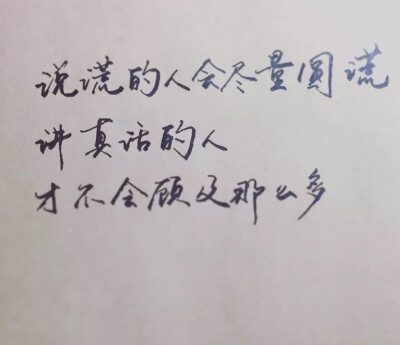 说谎的人会尽量圆谎
讲真话的人
才不会顾及那么多